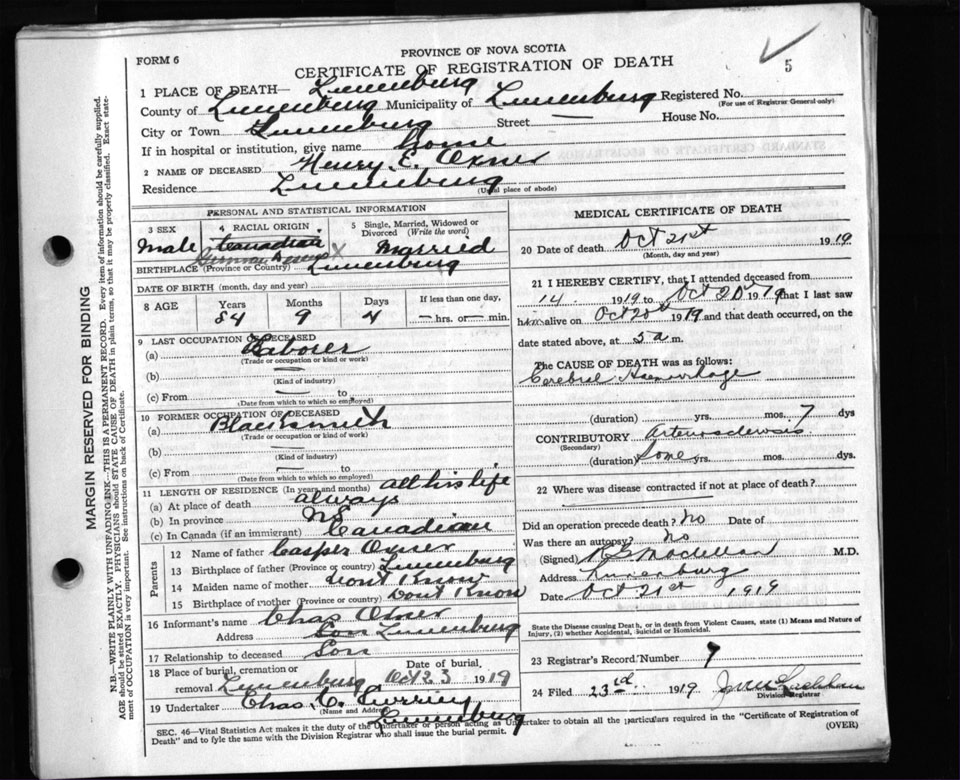 PROVINCE OF NOVA SCOTIA
FORM 6
CERTIFICATE OF REGISTRATION OF DEATH
5
1 PLACE OF DEATH— Lunenburg
County of Lunenburg Municipality of Lunenburg Registered No.
(For use of Registrar General only)
City or Town Lunenburg Street — House No.
If in hospital or institution, give name Home
2 NAME OF DECEASED Henry E. Oxner
Residence Lunenburg
(Usual place of abode)
PERSONAL AND STATISTICAL INFORMATION
3 SEX
Male
4 RACIAL ORIGIN
Canadian
German X
5 Single, Married, Widowed or Divorced (Write the word)
Married
BIRTHPLACE (Province or Country) Lunenburg
DATE OF BIRTH (month, day and year)
8 AGE Years Months Days If less than one day,
84 9 4 — hrs. or — min.
9 LAST OCCUPATION OF DECEASED
(a) Laborer
(Trade or occupation or kind or work)
(b) —
(Kind of industry)
(c) From — to
(Date from which to which so employed)
10 FORMER OCCUPATION OF DECEASED
(a) Blacksmith
(Trade or occupation or kind or work)
(b) —
(Kind of industry)
(c) From — to
(Date from which to which so employed)
11 LENGTH OF RESIDENCE (In years and months) all his life
(a) At place of death always
(b) In province NS
(c) In Canada (if an immigrant) Canadian
Parents
12 Name of father Casper Oxner
13 Birthplace of father (Province or country) Lunenburg
14 Maiden name of mother Dont Know
15 Birthplace of mother (Province or country) Dont Know
16 Informant's name Chas Oxner
Address Son Lunenburg
17 Relationship to deceased Son
18 Place of burial, cremation or removal Lunenburg
Date of burial Oct 23 1919
19 Undertaker Chas. C.
(Name and Address)
Lunenburg
MEDICAL CERTIFICATE OF DEATH
20 Date of death Oct 21st 1919
(Month, day and year)
21 I HEREBY CERTIFY, that I attended deceased from
14 1919 to Oct 20 1919 that I last saw
him alive on Oct 20st 1919 and that death occurred, on the
date stated above, at 5 a m.
The CAUSE OF DEATH was as follows:
Cerebral Hemorrhage
(duration) yrs. mos. 7 dys
CONTRIBUTORY Arteriosclerosis
(Secondary)
(duration) Some yrs. mos. dys.
22 Where was disease contracted if not at place of death?
Did an operation precede death? No Date of
Was there an autopsy? No
(Signed) M.D.
Address Lunenburg
Date Oct 21st 1919
State the Disease causing Death, or in death from Violent Causes, state (1) Means and Nature of
Injury, (2) whether Accidental, Suicidal or Homicidal.
23 Registrar's Record Number 9
24 Filed 23rd 1919
Division Registrar
SEC. 46—Vital Statistics Act makes it the duty of the Undertaker or person acting as Undertaker to obtain all the particulars required in the "Certificate of Registration of
Death" and to fyle the same with the Division Registrar who shall issue the burial permit.
(OVER)
MARGIN RESERVED FOR BINDING
N.B.—WRITE PLAINLY WITH UNFADING INK—THIS IS A PERMANENT RECORD. Every item of information should be carefully supplied.
AGE should be stated EXACTLY. PHYSICIANS should STATE CAUSE OF DEATH in plain terms, so that it may be properly classified. Exact state-
ment of OCCUPATION is very important. See instructions on back of Certificate.